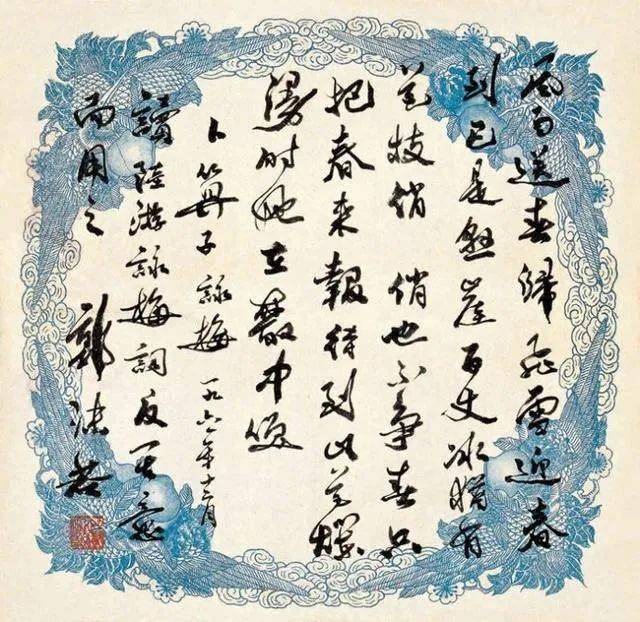 風雨送春歸飛雪迎春
到已是懸崖百丈冰猶有
花枝俏 俏也不爭春只
把春来報待到山花爛
漫时她在叢中笑
卜算子詠梅 一九六一年十二月
讀陸游詠梅詞反其意
而用之 郭沫若